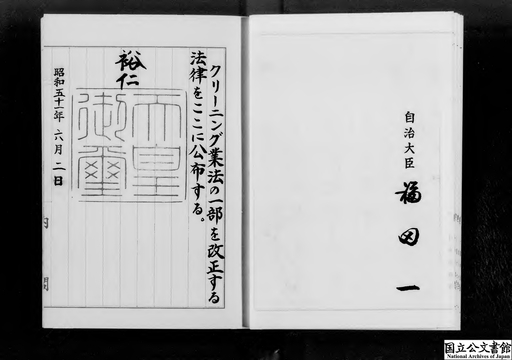 自治大臣 福田一
クリーニング業法の一部を改正する
法律をここに公布する。
裕仁
天皇
御璽
昭和五十一年六月二日
内閣
国立公文書館
National Archives of Japan